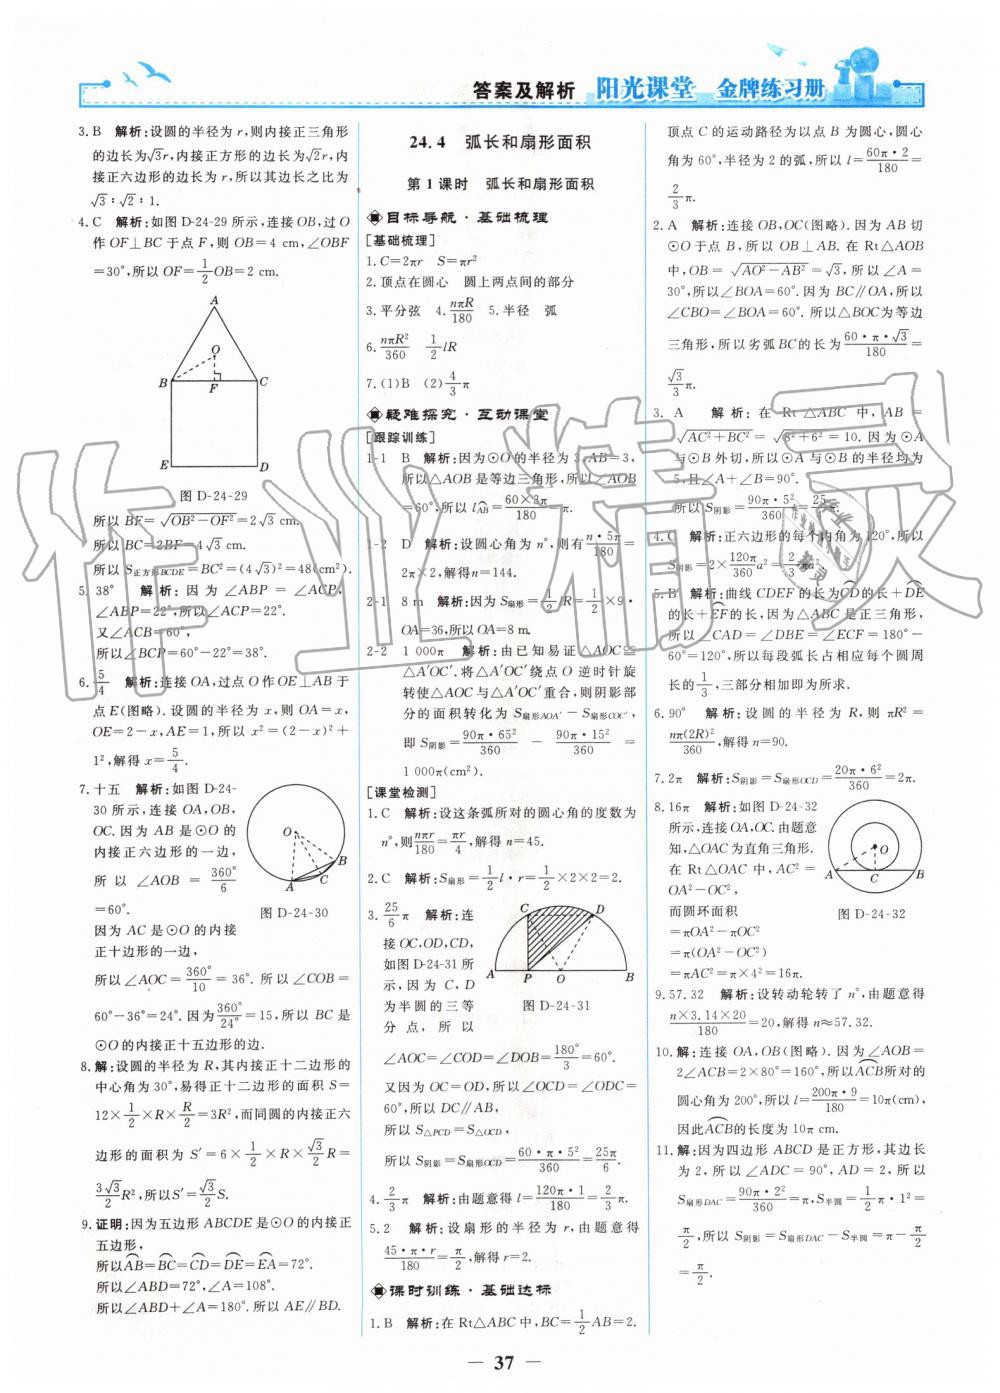 答案及解析 阳光课堂 金牌练习册
3. B 解析:设圆的半径为 r,则内接正三角形
的边长为√3r,内接正方形的边长为√2r,内
接正六边形的边长为 r,所以其边长之比为
√3∶√2∶1.
4. C 解析:如图 D-24-29 所示,连接 OB,过 O
作 OF⊥BC 于点 F,则 OB=4 cm,∠OBF
=30°,所以 OF=1/2OB=2 cm.
A
O
B F C
E D
图 D-24-29
所以 BF=√(OB²-OF²)=2√3 cm.
所以 BC=2BF=4√3 cm.
所以 S正方形BCDE=BC²=(4√3)²=48(cm²).
5. 38° 解析:因为∠ABP=∠ACP,
∠ABP=22°,所以∠ACP=22°.
又∠ACB=60°,
所以∠BCP=60°-22°=38°.
6. 5/4 解析:连接 OA,过点 O 作 OE⊥AB 于
点 E(图略).设圆的半径为 x,则 OA=x,
OE=2-x,AE=1,所以 x²=(2-x)²+
1²,解得 x=5/4.
7. 十五 解析:如图 D-24-
30 所示,连接 OA,OB,
OC.因为 AB 是⊙O 的
内接正六边形的一边,
所以∠AOB=360°/6
=60°.
O
A C B
图 D-24-30
因为 AC 是⊙O 的内接
正十边形的一边,
所以∠AOC=360°/10=36°.所以∠COB=
60°-36°=24°.因为360°/24°=15,所以 BC 是
⊙O 的内接正十五边形的边.
8. 解:设圆的半径为 R,其内接正十二边形的
中心角为 30°,易得正十二边形的面积 S=
12×1/2×R×R/2=3R²,而同圆的内接正六
边形的面积为 S′=6×1/2×R×√3/2R=
3√3/2R²,所以S′=√3/2S.
9. 证明:因为五边形 ABCDE 是⊙O 的内接正
五边形,
所以⌒AB=⌒BC=⌒CD=⌒DE=⌒EA=72°.
所以∠ABD=72°,∠A=108°.
所以∠ABD+∠A=180°.所以 AE∥BD.
24.4 弧长和扇形面积
第 1 课时 弧长和扇形面积
目标导航·基础梳理
[基础梳理]
1. C=2πr S=πr²
2. 顶点在圆心 圆上两点间的部分
3. 平分弦 4. nπR/180 5. 半径 弧
6. nπR²/360 1/2lR
7. (1)B (2)4/3π
疑难探究·互动课堂
[跟踪训练]
1-1 B 解析:因为⊙O 的半径为 3,AB=3,
所以△AOB 是等边三角形,所以∠AOB
=60°,所以 l⌒AB=60×3π/180=π.
1-2 D 解析:设圆心角为 n°,则有n·5π/180=
2π×2,解得n=144.
2-1 8 m 解析:因为 S扇形=1/2lR=1/2×9·
OA=36,所以 OA=8 m.
2-2 1 000π 解析:由已知易证△AOC≌
△A′OC′.将△A′OC′绕点 O 逆时针旋
转使△AOC 与△A′OC′重合,则阴影部
分的面积转化为 S扇形AOA′-S扇形COC′,
即 S阴影=90π·65²/360-90π·15²/360=
1 000π(cm²).
[课堂检测]
1. C 解析:设这条弧所对的圆心角的度数为
n°,则nπr/180=πr/4,解得 n=45.
2. C 解析:S扇形=1/2l·r=1/2×2×2=2.
3. 25/6π 解析:连
接 OC,OD,CD,
如图 D-24-31 所
示,因为 C,D
为半圆的三等
分点,所以
C D
A P O B
图 D-24-31
∠AOC=∠COD=∠DOB=180°/3=60°.
又因为 OC=OD,所以∠OCD=∠ODC=
60°,所以 DC∥AB,
所以 S△PCD=S△OCD,
所以 S阴影=S扇形OCD=60·π·5²/360=25π/6.
4. 2/3π 解析:由题意得 l=120π·1/180=2/3π.
5. 2 解析:设扇形的半径为 r,由题意得
45·π·r/180=π/2,解得 r=2.
课时训练·基础达标
1. B 解析:在 Rt△ABC 中,BC=1/2AB=2.
顶点 C 的运动路径为以点 B 为圆心,圆心
角为 60°,半径为 2 的弧,所以 l=60π·2/180=
2/3π.
2. A 解析:连接 OB,OC(图略).因为 AB 切
⊙O 于点 B,所以 OB⊥AB.在 Rt△AOB
中,OB=√(AO²-AB²)=√3,所以∠A=
30°,所以∠BOA=60°.因为 BC∥OA,所以
∠CBO=∠BOA=60°.所以△BOC为等边
三角形,所以劣弧 BC的长为60·π·√3/180=
√3/3π.
3. A 解析:在 Rt△ABC 中,AB=
√(AC²+BC²)=√(8²+6²)=10.因为⊙A
与⊙B 外切,所以⊙A 与⊙B 的半径均为
5,且∠A+∠B=90°.
所以 S阴影=90π·5²/360=25/4π.
4. C 解析:正六边形的每个内角为 120°,所以
S阴影=2×120π/360a²=2/3πa².
5. B 解析:曲线 CDEF 的长为⌒CD的长+⌒DE
的长+⌒EF的长,因为△ABC 是正三角形,
所以∠CAD=∠DBE=∠ECF=180°-
60°=120°,所以每段弧长占相应每个圆周
长的1/3,三部分相加即为所求.
6. 90° 解析:设圆的半径为 R,则 πR²=
nπ(2R)²/360,解得 n=90.
7. 2π 解析:S阴影=S扇形OCD=20π·6²/360=2π.
8. 16π 解析:如图 D-24-32
所示,连接 OA,OC.由题意
知,△OAC为直角三角形.
在 Rt△OAC 中,AC²=
OA²-OC²,
O
A C B
图 D-24-32
而圆环面积
=πOA²-πOC²
=π(OA²-OC²)
=πAC²=π×4²=16π.
9. 57.32 解析:设转动轮转了 n°,由题意得
n×3.14×20/180=20,解得 n≈57.32.
10. 解:连接 OA,OB(图略).因为∠AOB=
2∠ACB=2×80°=160°,所以⌒ACB所对的
圆心角为 200°,所以 l=200π·9/180=10π(cm),
因此⌒ACB的长度为 10π cm.
11. 解:因为四边形 ABCD 是正方形,其边长
为 2,所以∠ADC=90°,AD=2,所以
S扇形DAC=90π·2²/360=π,S半圆=1/2π·1²=
π/2,所以 S阴影=S扇形DAC-S半圆=π-π/2=
π/2.
37
作业精灵